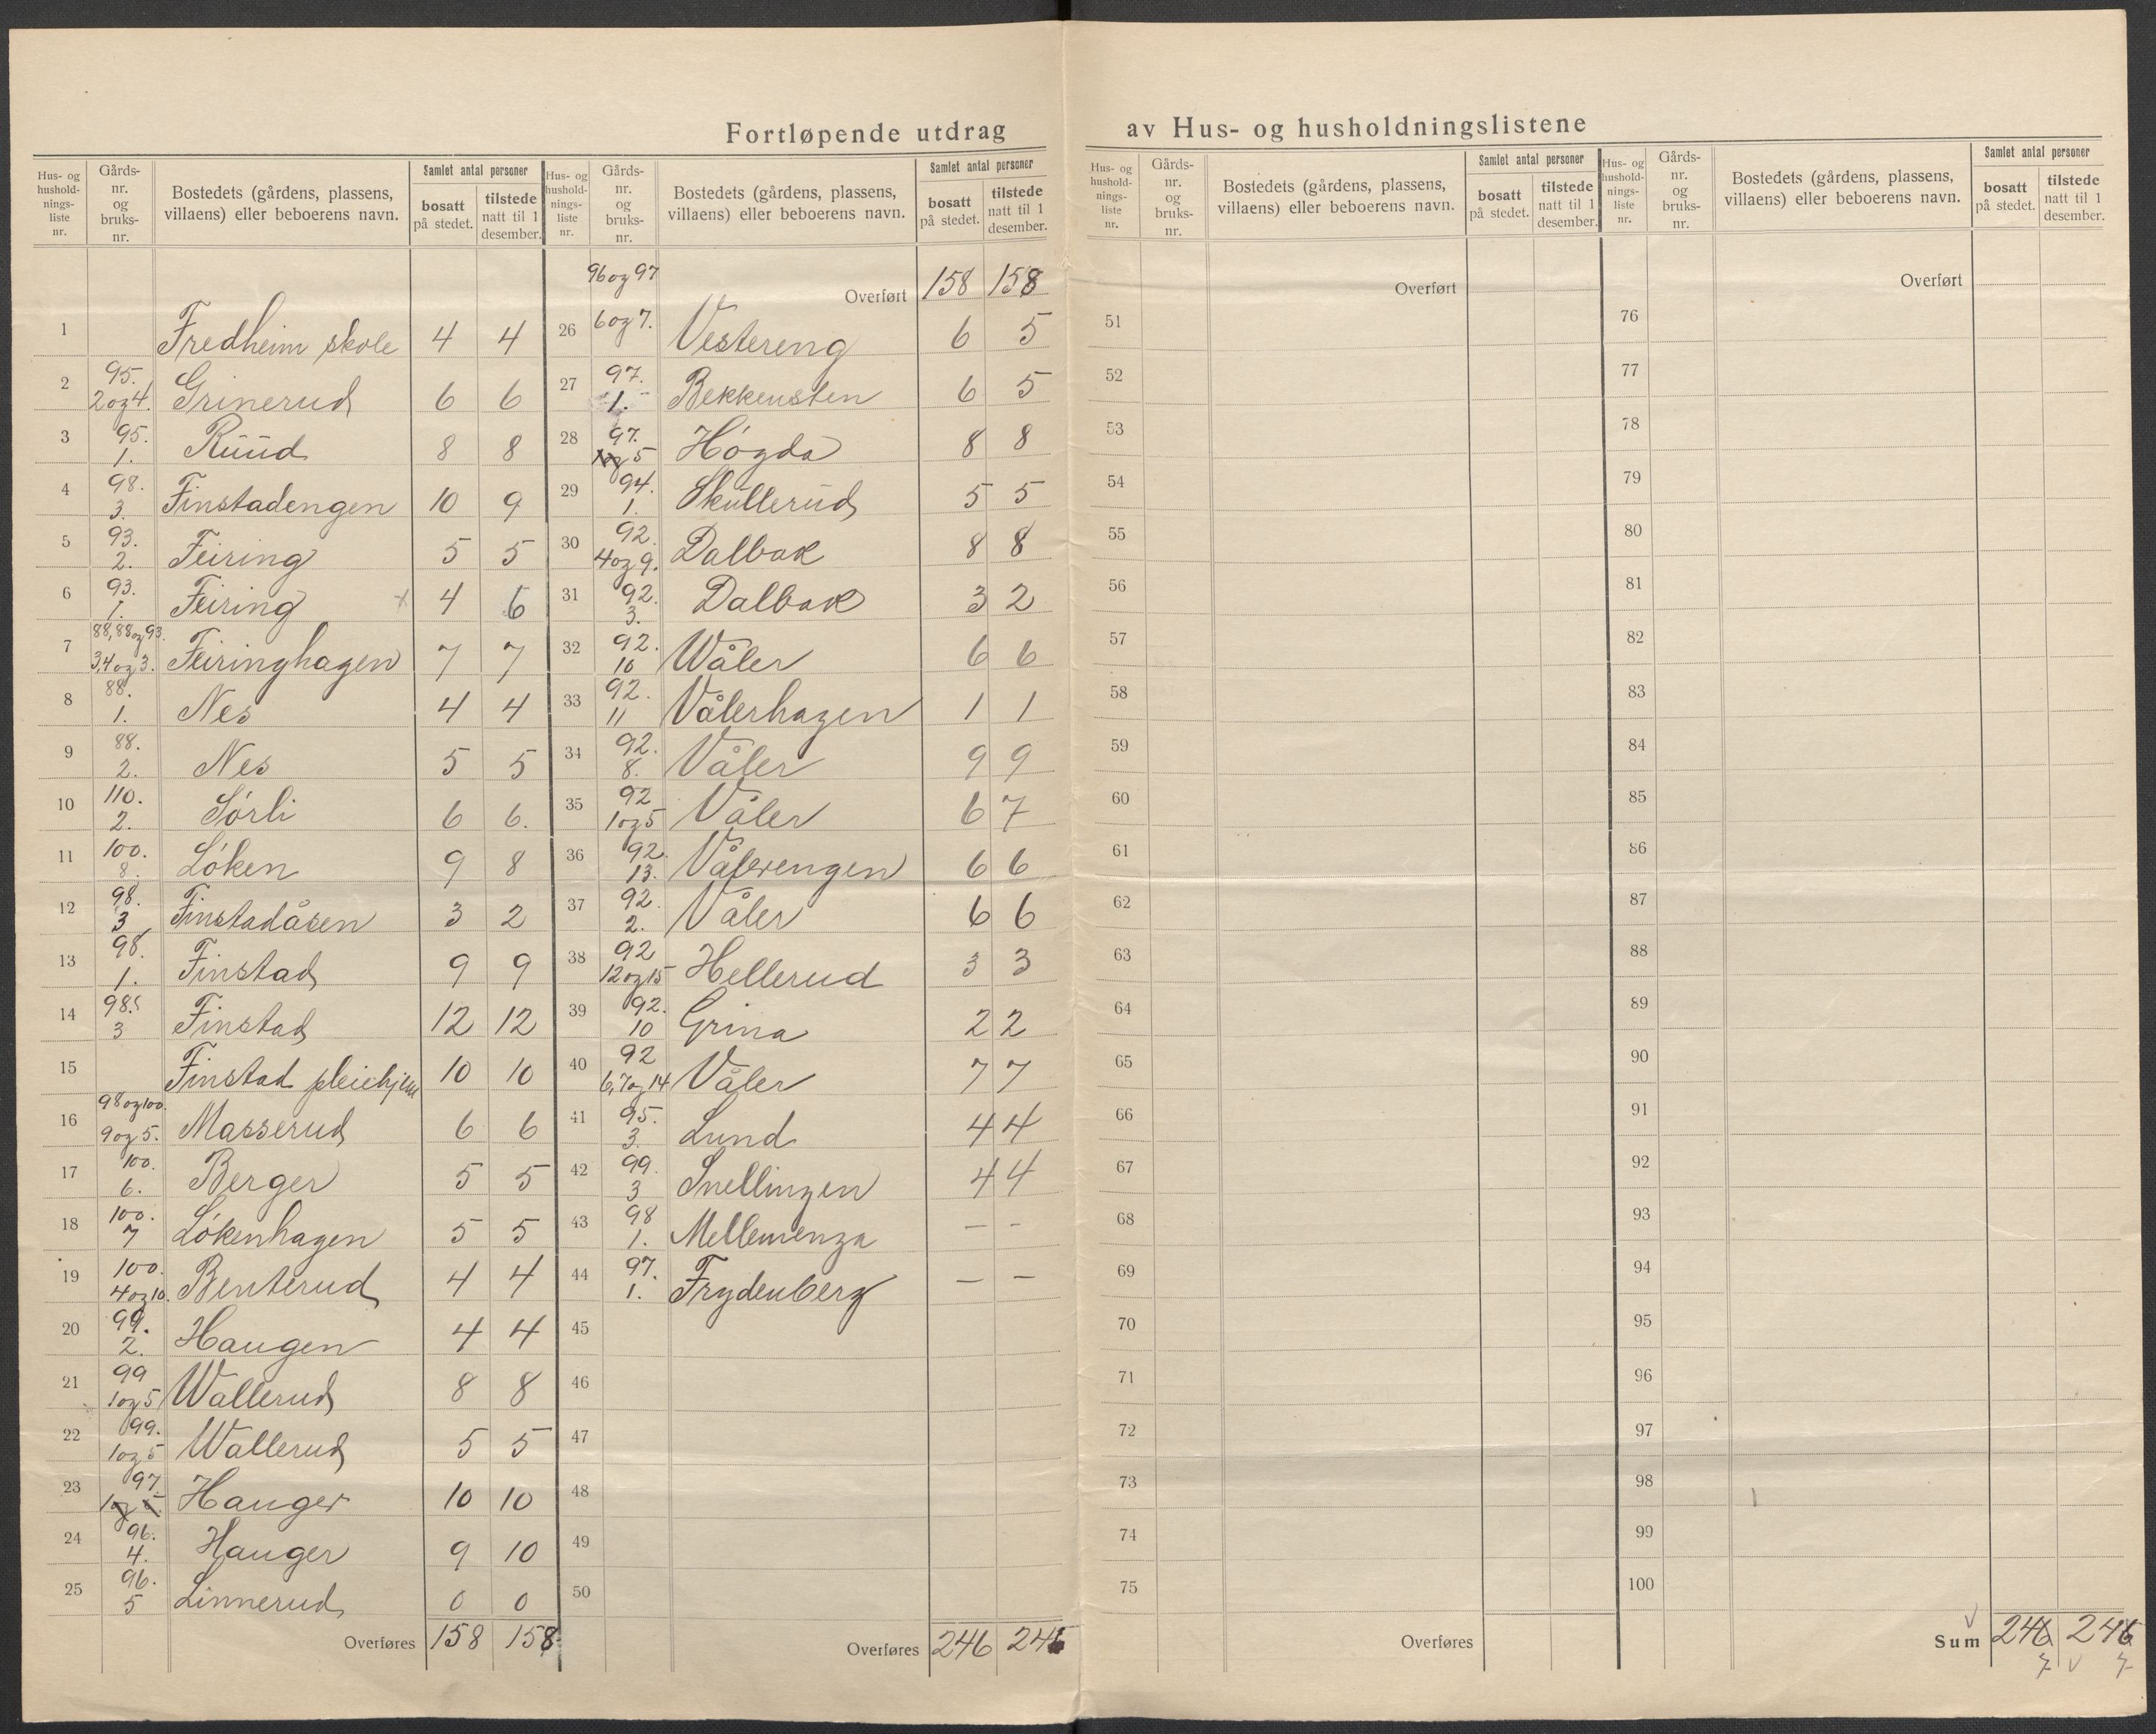 Fortløpende utdrag av Hus- og husholdningslistene
Hus- og hushold- nings- liste nr. | Gårds- nr. og bruks- nr. | Bostedets (gårdens, plassens, villaens) eller beboerens navn. | Samlet antal personer | bosatt på stedet. | tilstede natt til 1 desember.
1 Fredheim skole 4 4
2 95. 2 og 4. Grinerud 6 6
3 95. 1. Ruud 8 8
4 98. 3. Finstadengen 10 9
5 93. 2. Feiring 5 5
6 93. 1. Feiring x 4 6
7 88, 88 og 93. 3,4 og 3. Feiringhagen 7 7
8 88. 1. Nes 4 4
9 88. 2. Nes 5 5
10 110. 2. Sórli 6 6.
11 100. 8. Lóken 9 8
12 98. 3 Finstadåsen 3 2
13 98. 1. Finstad 9 9
14 98. 3 Finstad 12 12
15 Finstad pleiehjem 10 10
16 98 og 100. 9 og 5. Masserud 6 6
17 100. 6. Berger 5 5
18 100. 7 Lókenhagen 5 5
19 100. 4 og 10. Benterud 4 4
20 99. 2. Haugen 4 4
21 99 1 og 5 Wallerud 8 8
22 99. 1 og 5 Wallerud 5 5
23 97. 1 Hauger 10 10
24 96. 4. Hauger 9 10
25 96. 5 Linnerud 0 0
Overføres 158 158
Hus- og hushold- nings- liste nr. | Gårds- nr. og bruks- nr. | Bostedets (gårdens, plassens, villaens) eller beboerens navn. | Samlet antal personer | bosatt på stedet. | tilstede natt til 1 desember.
Overført 158 158
26 96 og 97 6 og 7. Vestereng 6 5
27 97. 1. Bekkensten 6 5
28 97. 5 Hógda 8 8
29 94. 1. Skullerud 5 5
30 92. 4 og 9. Dalbak 8 8
31 92. 3. Dalbak 3 2
32 92. 16 Wåler 6 6
33 92. 11 Vålerhagen 1 1
34 92. 8. Våler 9 9
35 92 1 og 5 Våler 6 7
36 92. 13. Vålerengen 6 6
37 92. 2. Våler 6 6
38 92 12 og 15 Hellerud 3 3
39 92. 10 Grina 2 2
40 92 6,7 og 14 Våler 7 7
41 95. 3. Lund 4 4
42 99. 3 Snellingen 4 4
43 98 1. Mellemenga – –
44 97. 1. Frydenberg – –
45
46
47
48
49
50
Overføres 246 246
Hus- og hushold- nings- liste nr. | Gårds- nr. og bruks- nr. | Bostedets (gårdens, plassens, villaens) eller beboerens navn. | Samlet antal personer | bosatt på stedet. | tilstede natt til 1 desember.
Overført
51
52
53
54
55
56
57
58
59
60
61
62
63
64
65
66
67
68
69
70
71
72
73
74
75
Overføres
Hus- og hushold- nings- liste nr. | Gårds- nr. og bruks- nr. | Bostedets (gårdens, plassens, villaens) eller beboerens navn. | Samlet antal personer | bosatt på stedet. | tilstede natt til 1 desember.
Overført
76
77
78
79
80
81
82
83
84
85
86
87
88
89
90
91
92
93
94
95
96
97
98
99
100
Sum 246 246
7 7